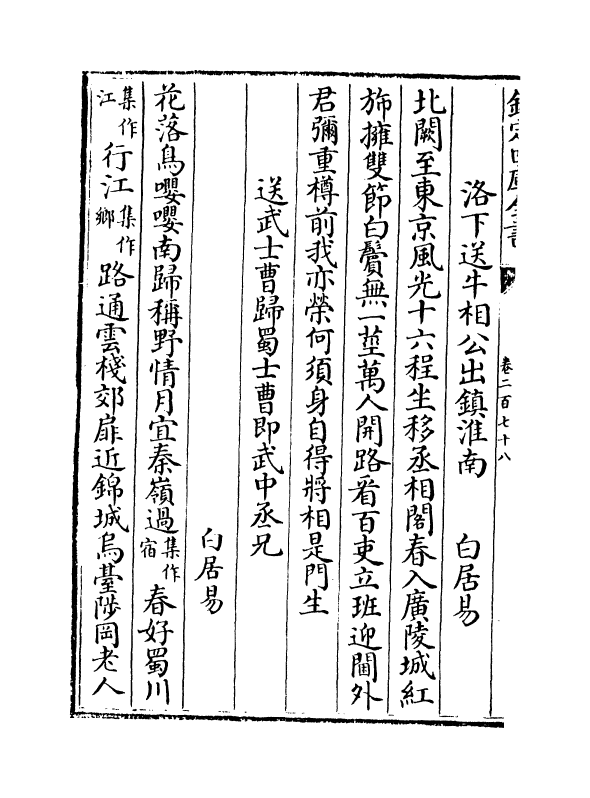 欽定四庫全書
卷二百七十八
洛下送牛相公出鎮淮南　白居易
北闕至東京風光十六程坐移丞相閣春入廣陵城紅
斾擁雙節白鬢無一莖萬人開路看百吏立班迎閫外
君彌重樽前我亦榮何須身自得將相是門生
送武士曹歸蜀士曹即武中丞兄
白居易
花落鳥嚶嚶南歸稱野情月宜秦嶺過集作宿春好蜀川
集作江行江集作鄉路通雲棧郊扉近錦城烏臺陟岡老人